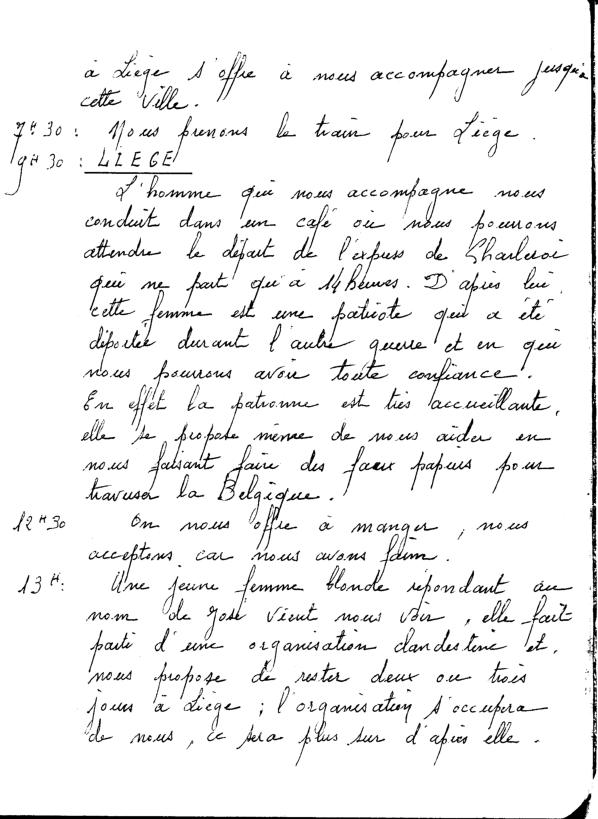 à Liège s'offre à nous accompagner jusqu'à
cette ville.
7H 30 : Nous prenons le train pour Liège.
9H 30 : LIEGE
L'homme qui nous accompagne nous
conduit dans un café où nous pouvons
attendre le départ de l'express de Charleroi
qui ne part qu'à 14 heures. D'après lui,
cette femme est une patriote qui a été
déportée durant l'autre guerre et en qui
nous pouvons avoir toute confiance.
En effet la patronne est très accueillante,
elle se propose même de nous aider en
nous faisant faire des faux papiers pour
traverser la Belgique.
12H30 On nous offre à manger, nous
acceptons car nous avons faim.
13H: Une jeune femme blonde répondant au
nom de José vient nous voir, elle fait
parti d'une organisation clandestine et,
nous propose de rester deux ou trois
jours à Liège ; l'organisation s'occupera
de nous, ce sera plus sur d'après elle.